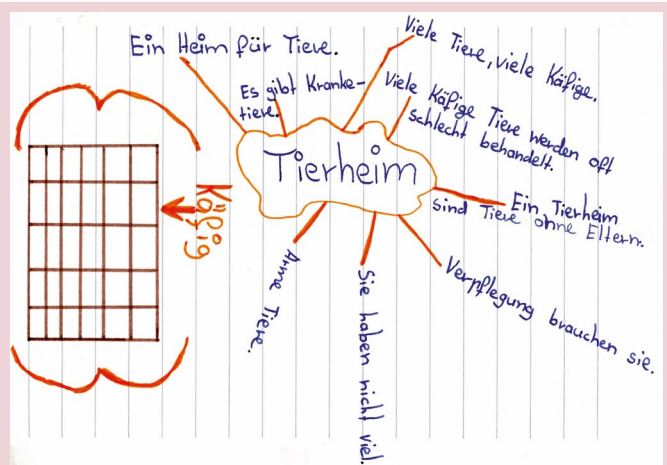 Ein Heim für Tiere.
Es gibt Kranke-
tiere.
Viele Tiere, viele Käfige.
Viele Käfige Tiere werden oft
schlecht behandelt.
Tierheim
Ein Tierheim
sind Tiere ohne Eltern.
Verpflegung brauchen sie.
Sie haben nicht viel.
Arme Tiere.
Käfig